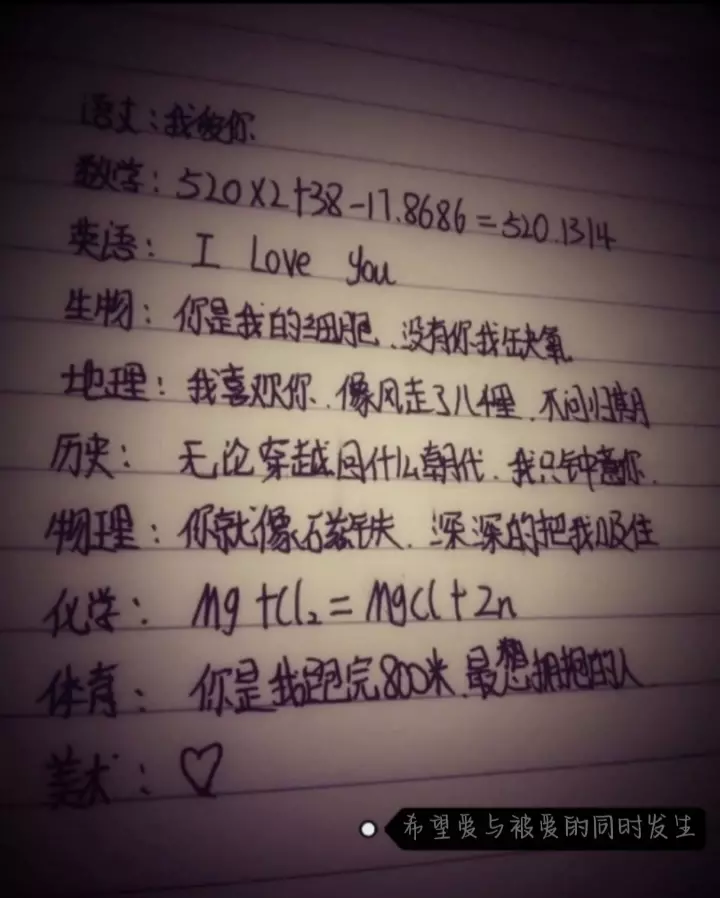 语文：我爱你
数学：520×2+38-17.8686=520.1314
英语： I Love you
生物：你是我的细胞、没有你我缺氧
地理：我喜欢你、像风走了八千里、不问归期
历史： 无论穿越回什么朝代、我只钟意你、
物理：你就像磁铁、深深的把我吸住
化学： Mg+Cl₂=MgCl+Zn
体育： 你是我跑完800米、最想拥抱的人
美术：♡
希望爱与被爱的同时发生